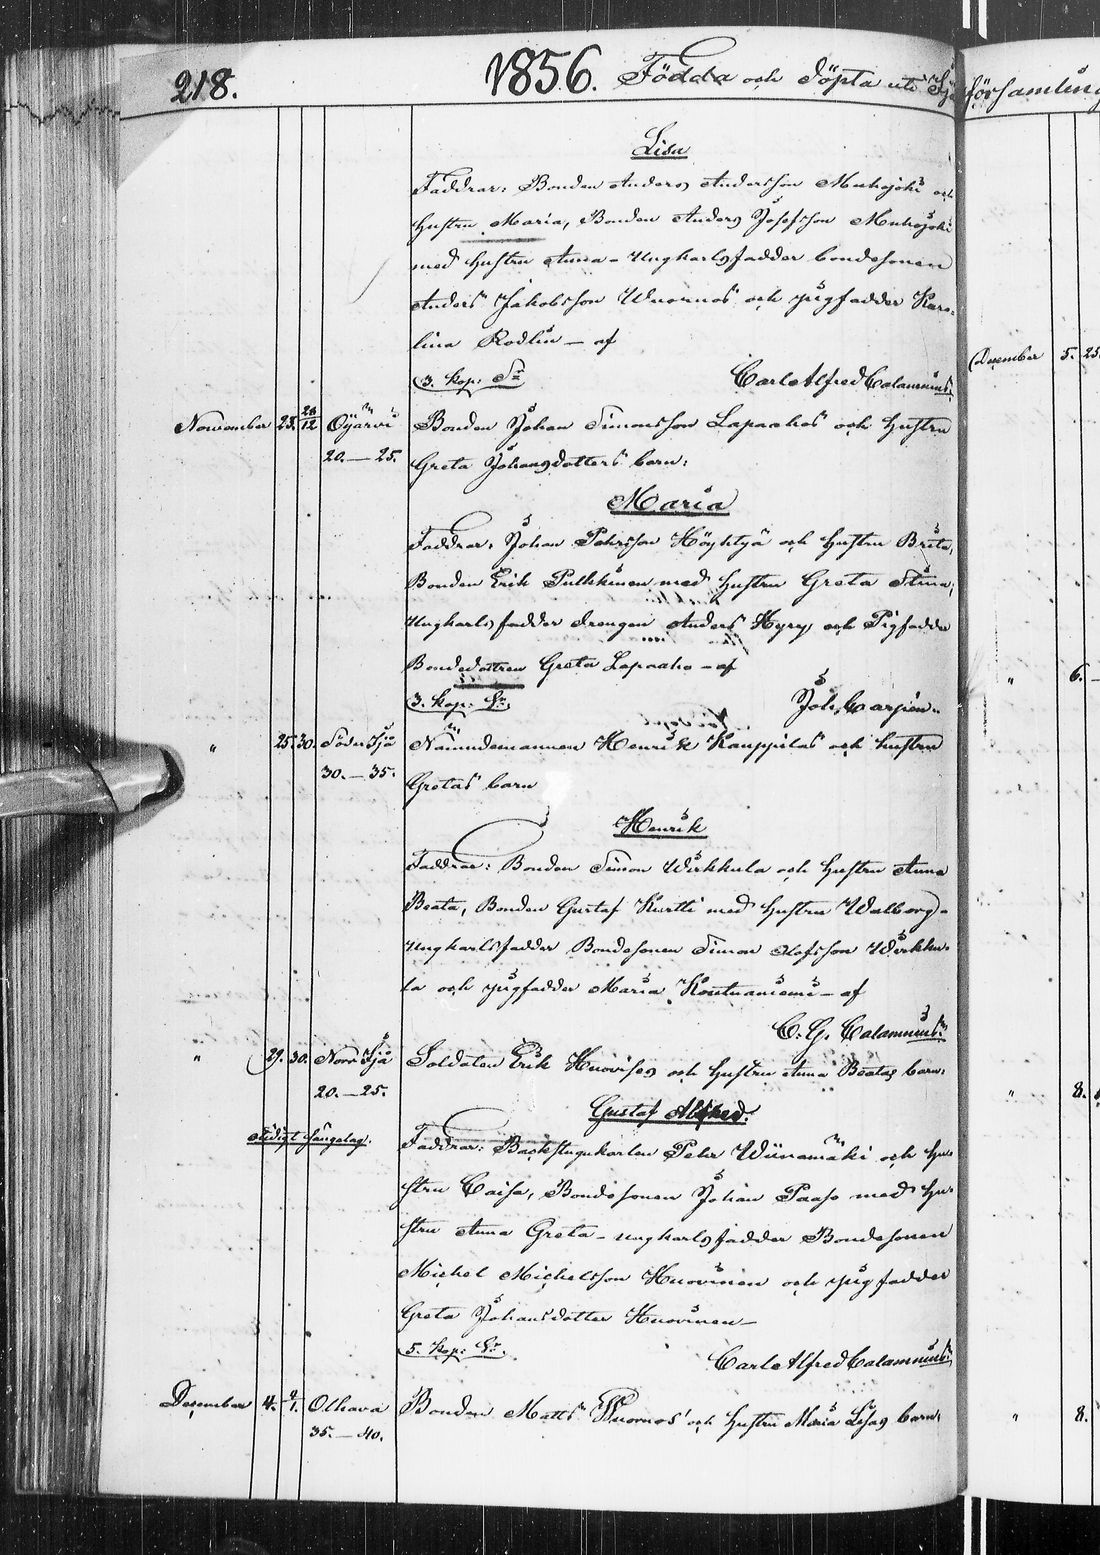 218. 1856. Födda och Döpta uti Ijo församling
Lisa
Faddrar: Bonden Anders Andersson Muhojoki och
hustru Maria, Bonden Anders Josefsson Muhojoki
med hustru Anna - Ungkarlsfadder bondesonen
Anders Jakobsson Wuornos och pigfadder Karo-
lina Rodlin - af
3. kop: Sr
Carl Alfred Calamnius.
November 23. 26/12 Oijärvi Bonden Johan Simonsson Lapaahos och hustru
20.-25. Greta Johansdotters barn:
Maria
Faddrar: Johan Pehrsson Höyhtyä och hustru Brita,
Bonden Erik Pulkkinen med hustru Greta Stina,
Ungkarlsfadder drengen Anders Hyry och Pigfadder
Bondedottren Greta Lapaaho - af
3. kop: Sr.
Joh. Carpén.
" 25. 30. Söder Ijå Nämndemannen Henrik Kauppilas och hustru
30.-35. Gretas barn
Henrik
Faddrar: Bonden Simon Wirkkula och hustru Anna
Beata, Bonden Gustaf Kurtti med hustru Walborg -
Ungkarlsfadder Bondesonen Simon Olofsson Wirkku-
la och pigfadder Maria - af
C. G. Calamnius
" 29. 30. Norr Ijå Soldaten Erik Huovises och hustru Anna Beatas barn:
20.-25.
Gustaf Alfred.
Faddrar: Backstugukarlen Peter Wiinamäki och hu-
stru Caisa, Bondesonen Johan Paaso med hu-
stru Anna Greta - ungkarlsfadder Bondesonen
Michel Michelsson Huovinen och pigfadder
Greta Johansdotter Huovinen -
5. kop: Sr.
Carl Alfred Calamnius
December 4. 4/1. Olhava Bonden Matts Wuornos och hustru Maria Lisas barn:
35.-40.
December 5. 25.
" 6. -
" 8.
" 8.